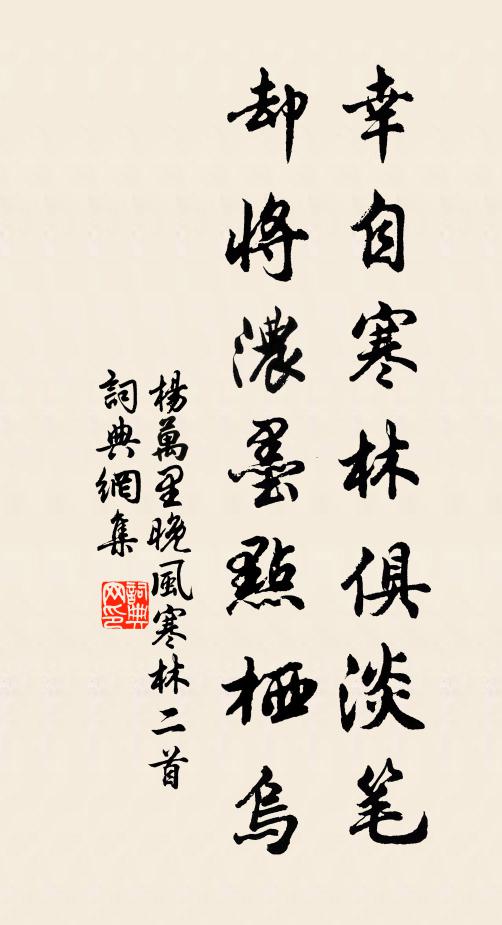 幸自寒林俱淡笔
却將濃墨點栖烏
楊萬里晚風寒林二首
詞典網集
詞典
网印